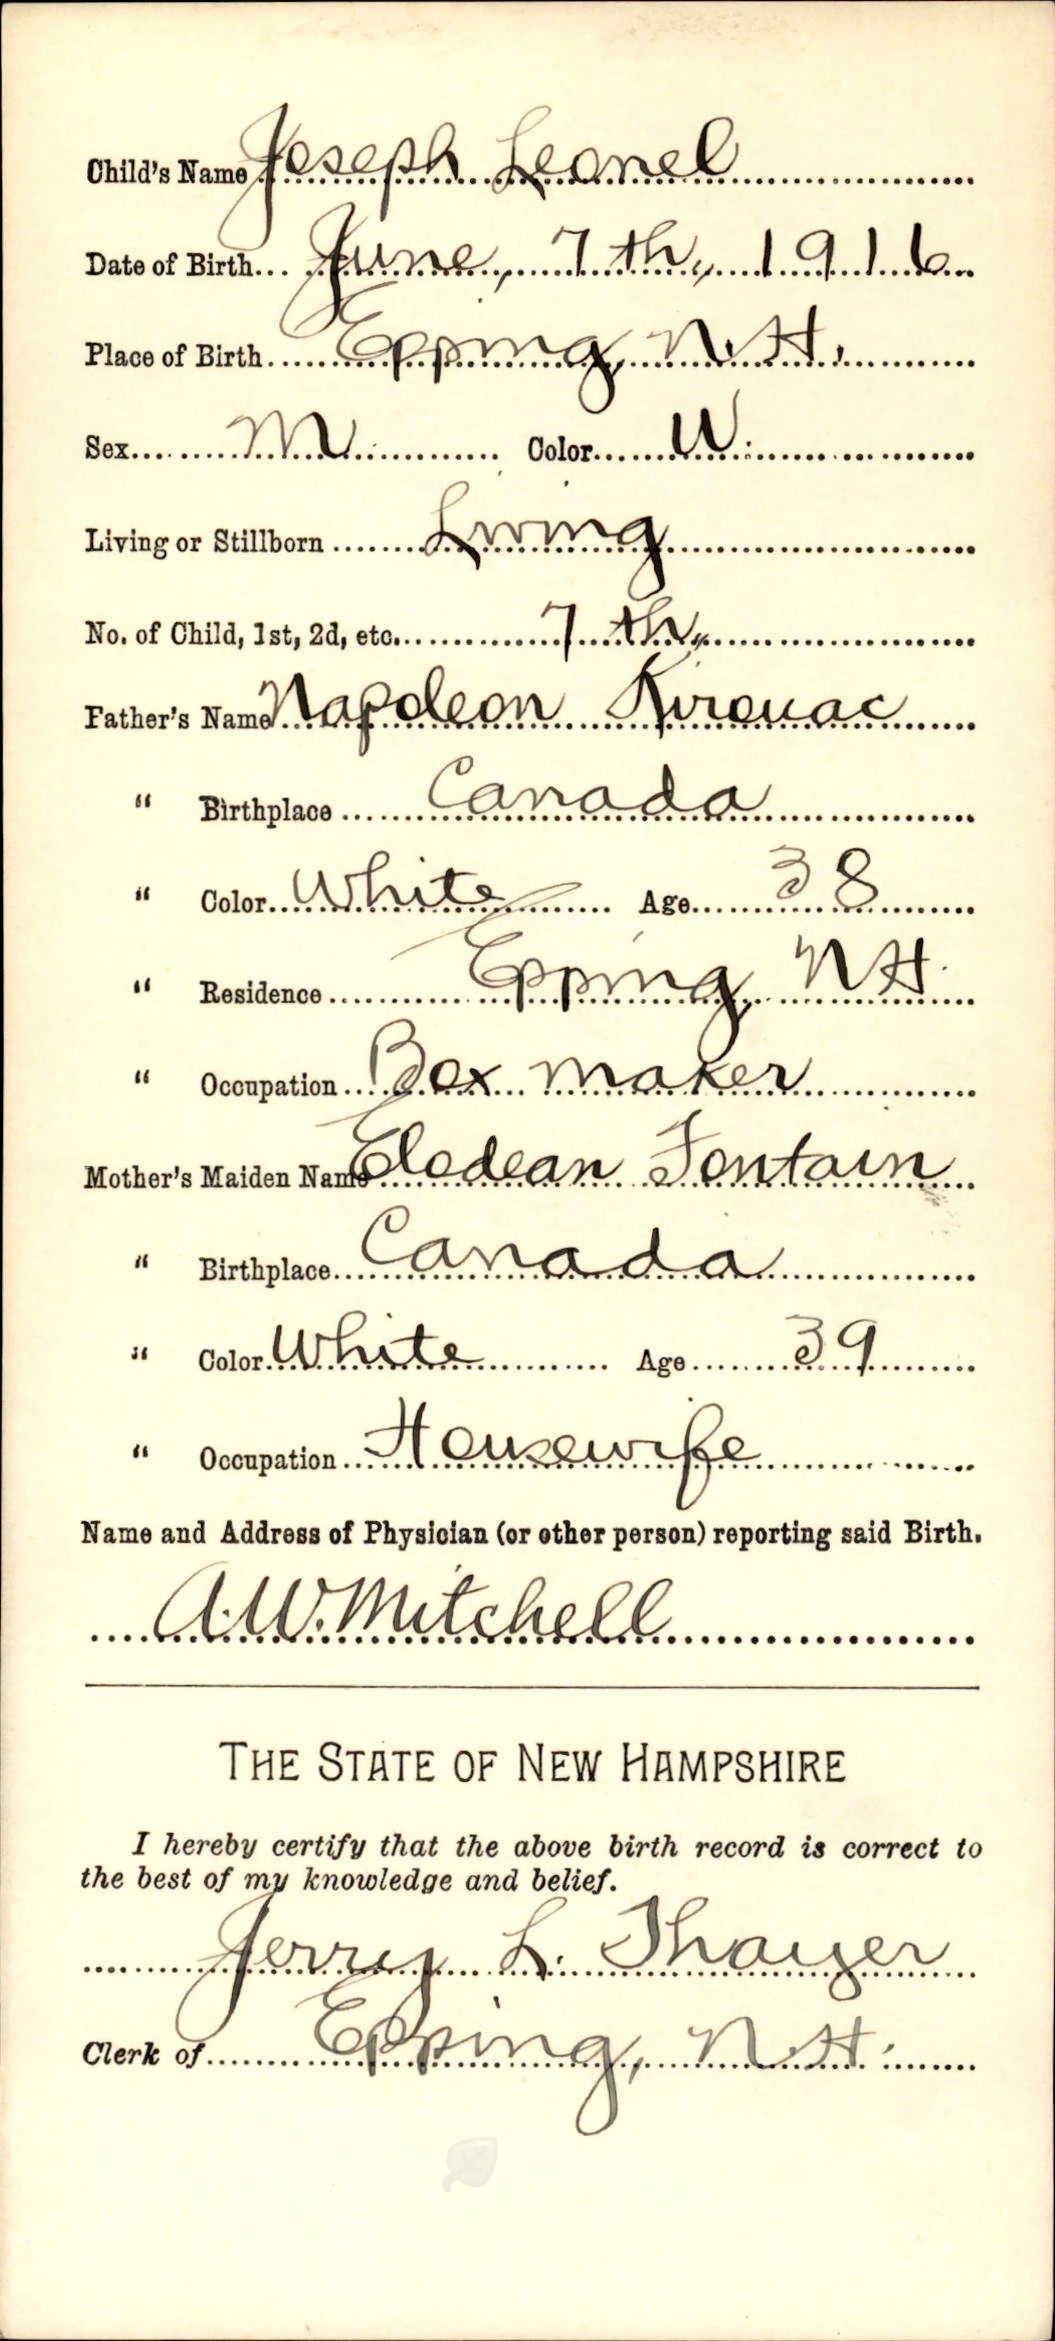 Child's Name Joseph Leonel
Date of Birth June, 7th, 1916
Place of Birth Epping, N.H.
Sex M. Color W.
Living or Stillborn Living
No. of Child, 1st, 2d, etc. 7th,
Father's Name Napoleon Kirouac
" Birthplace Canada
" Color White Age 38
" Residence Epping, N.H.
" Occupation Box maker
Mother's Maiden Name Elodean Fontain
" Birthplace Canada
" Color White Age 39
" Occupation Housewife
Name and Address of Physician (or other person) reporting said Birth.
A.W. Mitchell
THE STATE OF NEW HAMPSHIRE
I hereby certify that the above birth record is correct to
the best of my knowledge and belief.
Jerry L. Thayer
Clerk of Epping, N.H.